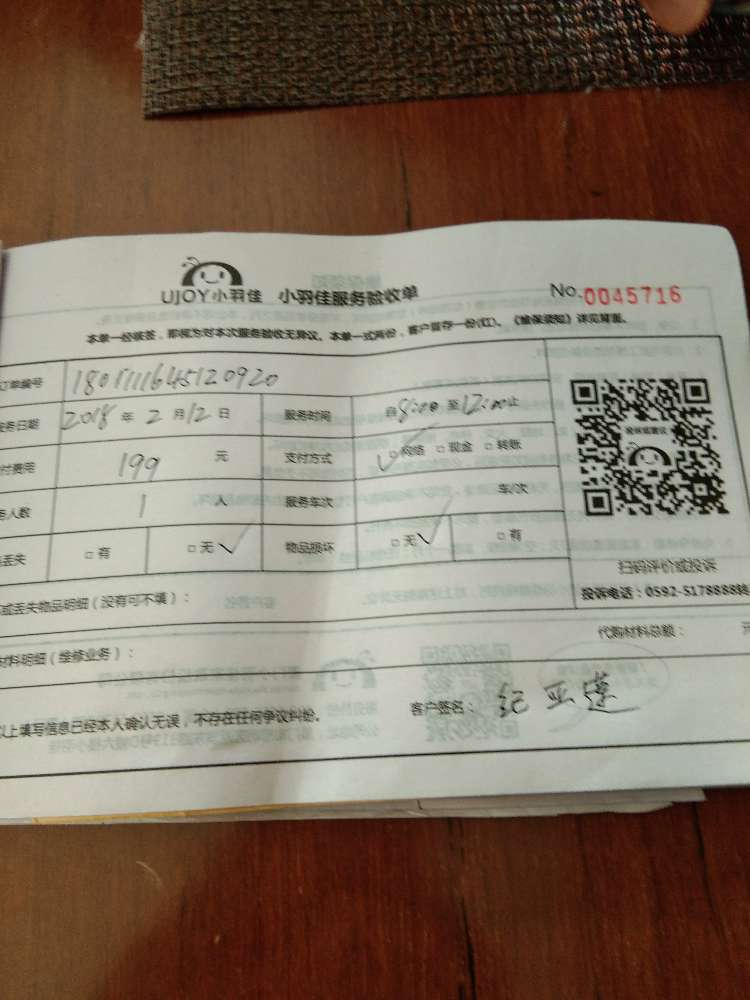 UJOY小羽佳 小羽佳服务验收单 No.0045716
本单一经核签，即视为对本次服务验收无异议。本单一式两份，客户留存一份(红)。《愉保须知》详见背面。
订单编号 1801111645120920
务日期 2018年2月12日 服务时间 自8:00至12:00止
付费用 199 元 支付方式 □网络 □现金 □转账
人数 1 人 服务车次 车/次
丢失 □有 □无 物品损坏 □无 □有
扫码评价或投诉
投诉电话：0592-5178888转
或丢失物品明细（没有可不填）：
代购材料总额：
材料明细（维修业务）：
以上填写信息已经本人确认无误，不存在任何争议纠纷。 客户签名：纪亚莲